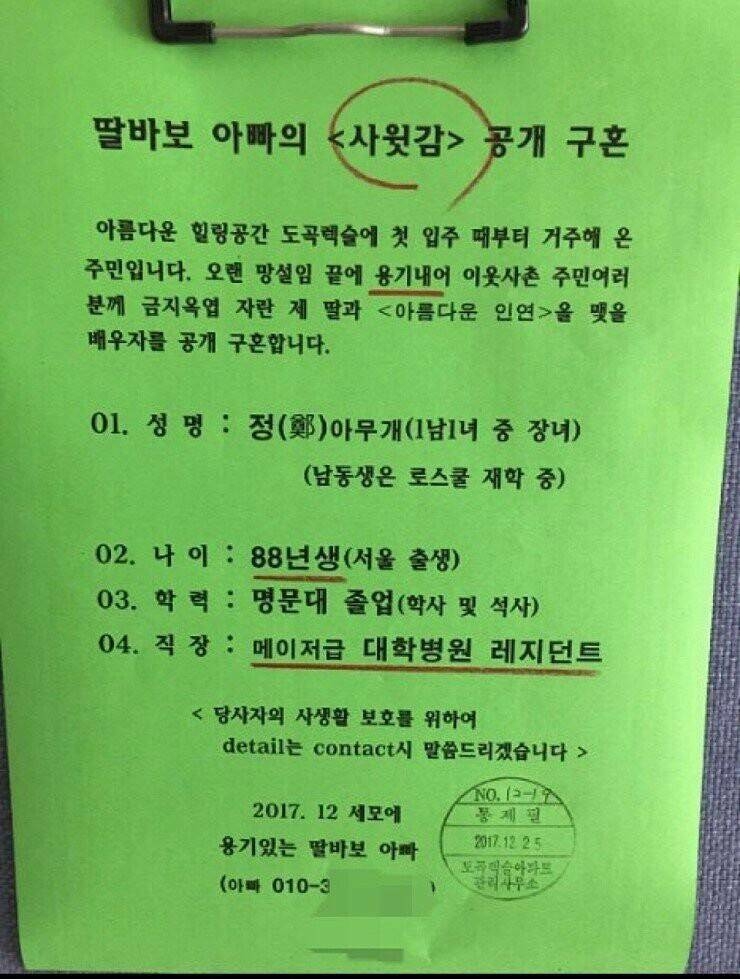 딸바보 아빠의 <사윗감> 공개 구혼
아름다운 힐링공간 도곡렉슬에 첫 입주 때부터 거주해 온
주민입니다. 오랜 망설임 끝에 용기내어 이웃사촌 주민여러
분께 금지옥엽 자란 제 딸과 <아름다운 인연>을 맺을
배우자를 공개 구혼합니다.
01. 성 명 : 정(鄭)아무개(1남1녀 중 장녀)
(남동생은 로스쿨 재학 중)
02. 나 이 : 88년생(서울 출생)
03. 학 력 : 명문대 졸업(학사 및 석사)
04. 직 장 : 메이저급 대학병원 레지던트
< 당사자의 사생활 보호를 위하여
detail는 contact시 말씀드리겠습니다 >
2017. 12 세모에
용기있는 딸바보 아빠
(아빠 010-3 )
NO. 12-19
통 제 필
2017. 12. 25
도곡렉슬아파트
관리사무소